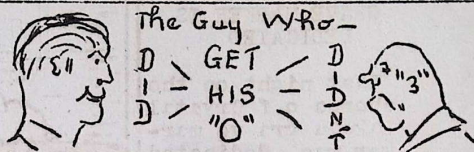 The Guy Who—
DID
GET
HIS
"O"
DIDN'T